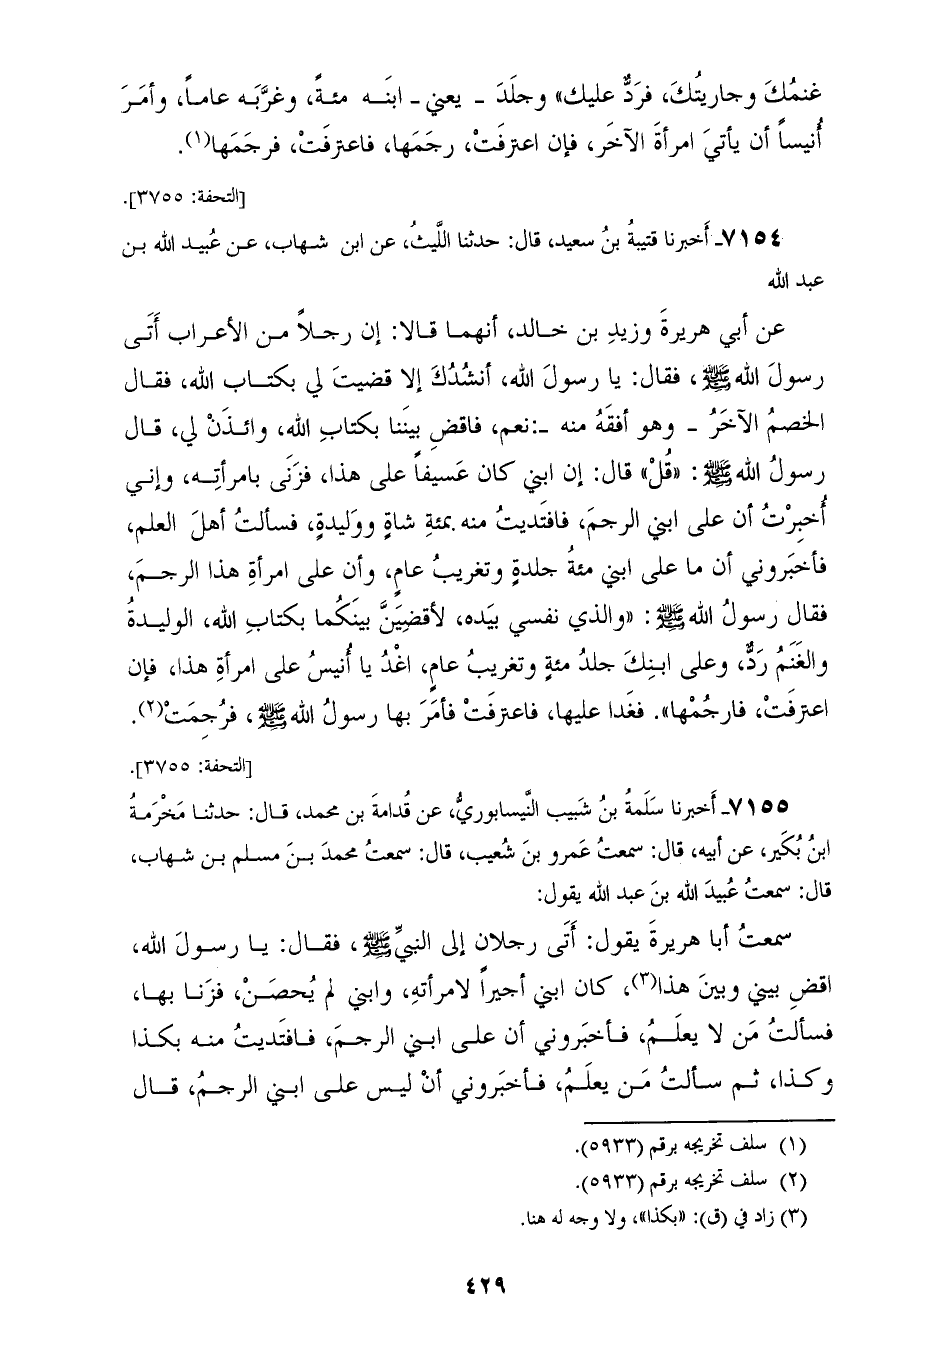 غنمُكَ وجاريتُكَ، فرَدٌّ عليك» وجلَدَ - يعني - ابنَـه مئةً، وغرَّبَه عاماً، وأمَرَ
أُنيساً أن يأتيَ امرأةَ الآخَر، فإن اعترفَتْ، رجَمَها، فاعترفَتْ، فرجَمَها(١).
[التحفة: ٣٧٥٥].
٧١٥٤- أَخبرنا قتيبةُ بنُ سعيد، قال: حدثنا اللَّيثُ، عن ابن شهاب، عن عُبيد الله بن
عبد الله
عن أبي هريرةَ وزيدِ بن خالد، أنهما قالا: إن رجلاً من الأعراب أَتَى
رسولَ الله ﷺ، فقال: يا رسولَ الله، أنشُدُكَ إلا قضيتَ لي بكتاب الله، فقال
الخصمُ الآخَرُ - وهو أفقَهُ منه -: نعم، فاقضِ بيننا بكتابِ الله، وائـذَنْ لي، قال
رسولُ الله ﷺ: «قُلْ» قال: إن ابني كان عَسيفاً على هذا، فزَنَى بامرأتِـه، وإني
أُخبِرْتُ أن على ابني الرجمَ، فافتَديتُ منه بمئةِ شاةٍ ووَليدةٍ، فسألتُ أهلَ العلم،
فأخبَروني أن ما على ابني مئةُ جلدةٍ وتغريبُ عامٍ، وأن على امرأةِ هذا الرجمَ،
فقال رسولُ الله ﷺ: «والذي نفسي بيَده، لأقضِيَنَّ بينَكُما بكتابِ الله، الوليدةُ
والغَنَمُ رَدٌّ، وعلى ابنِكَ جلدُ مئةٍ وتغريبُ عامٍ، اغْدُ يا أُنيسُ على امرأةِ هذا، فإن
اعترفَتْ، فارجُمْها». فغَدا عليها، فاعترفَتْ فأمَرَ بها رسولُ الله ﷺ، فرُجِمَتْ(٢).
[التحفة: ٣٧٥٥].
٧١٥٥- أَخبرنا سَلَمةُ بنُ شَبيب النَّيسابوريُّ، عن قُدامةَ بن محمد، قال: حدثنا مَخْرَمةُ
ابنُ بُكَير، عن أبيه، قال: سمعتُ عَمرو بنَ شُعيب، قال: سمعتُ محمدَ بنَ مسلم بن شهاب،
قال: سمعتُ عُبيدَ الله بنَ عبد الله يقول:
سمعتُ أبا هريرةَ يقول: أَتَى رجلان إلى النبيِّ ﷺ، فقال: يا رسولَ الله،
اقضِ بيني وبينَ هذا(٣)، كان ابني أجيراً لامرأتهِ، وابني لم يُحصَنْ، فزَنا بها،
فسألتُ مَن لا يعلَـمُ، فأخبَروني أن على ابني الرجمَ، فافتَديتُ منه بكذا
وكذا، ثم سألتُ مَن يعلَمُ، فأخبَروني أنْ ليس على ابني الرجمُ، قال
(١) سلف تخريجه برقم (٥٩٣٣).
(٢) سلف تخريجه برقم (٥٩٣٣).
(٣) زاد في (ق): «بكذا»، ولا وجه له هنا.
٤٢٩